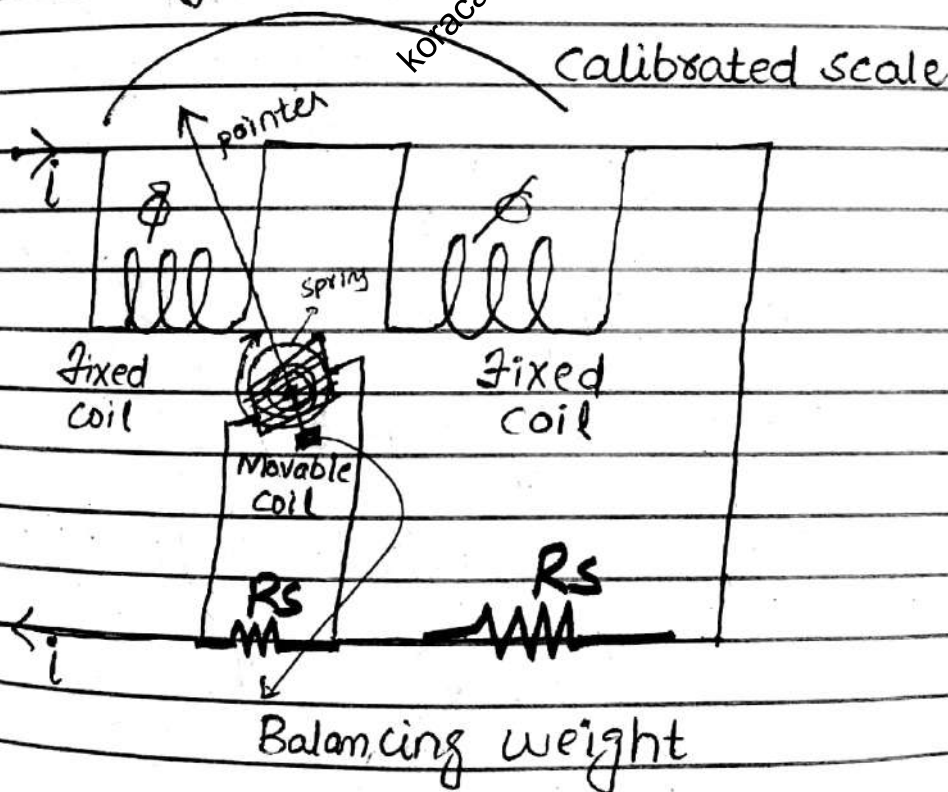 koraca
Calibrated scale
pointer
i
ϕ
ϕ
spring
Fixed
coil
Fixed
coil
Movable
coil
Rs
Rs
i
Balancing weight